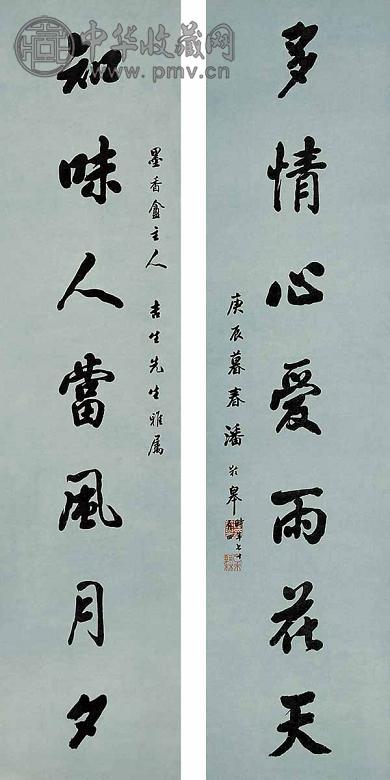 中华收藏网
www.pmv.cn
多情心爱雨花天
庚辰暮春潘龄皋時年七十有四
知味人當風月夕
墨香盦主人 吉生先生雅属